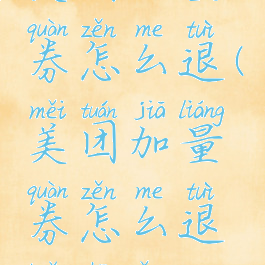 quàn zěn me tuì
券怎么退(
měi tuán jiā liàng
美团加量
quàn zěn me tuì
券怎么退